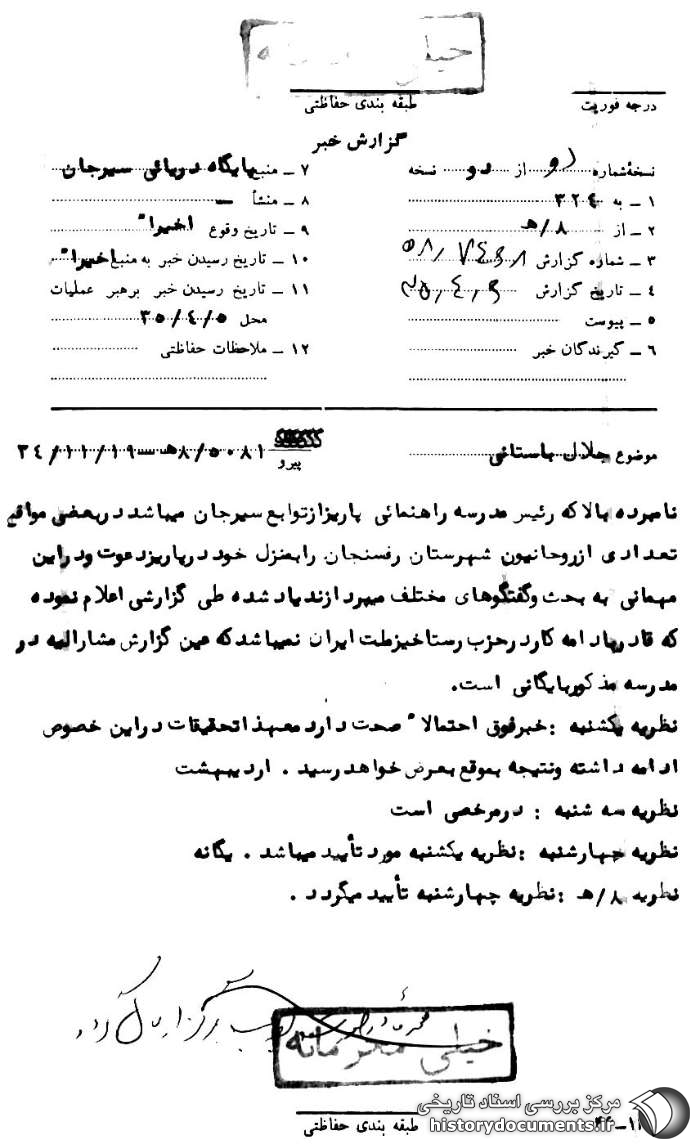 خیلی
درجه فوریت
طبقه بندی حفاظتی
گزارش خبر
نسخهٔ شماره دو از دو نسخه
۱ ـ به ۳۲٤
۲ ـ از ۸/هـ
۳ ـ شماره گزارش
٤ ـ تاریخ گزارش
۵ ـ پیوست
٦ ـ گیرندگان خبر
۷ ـ منبع پایگاه دریائی سیرجان
۸ ـ منشأ ـ
۹ ـ تاریخ وقوع اخیراً
۱۰ ـ تاریخ رسیدن خبر به منبع اخیراً
۱۱ ـ تاریخ رسیدن خبر برهبر عملیات
محل ۳۵/٤/۵
۱۲ ـ ملاحظات حفاظتی
موضوع جلال باستانی
پیرو ۸/۵۰۸۱هـ ـ ۳٤/۱۱/۱۹
نامبرده بالا که رئیس مدرسه راهنمائی پاریز از توابع سیرجان میباشد در بعضی مواقع
تعدادی از روحانیون شهرستان رفسنجان را بمنزل خود در پاریز دعوت و در این
مهمانی به بحث و گفتگوهای مختلف میپردازند یاد شده طی گزارشی اعلام نموده
که قادر بادامه کار در حزب رستاخیز ملت ایران نمیباشد که عین گزارش مشارالیه در
مدرسه مذکور بایگانی است.
نظریه یکشنبه : خبر فوق احتمالاً صحت دارد معهذا تحقیقات در این خصوص
ادامه داشته و نتیجه بموقع بعرض خواهد رسید . اردیبهشت
نظریه سه شنبه : در مرخصی است
نظریه چهارشنبه : نظریه یکشنبه مورد تأیید میباشد . یگانه
نظریه ۸/هـ : نظریه چهارشنبه تأیید میگردد .
خیلی محرمانه
طبقه بندی حفاظتی
مرکز بررسی اسناد تاریخی
historydocuments.ir